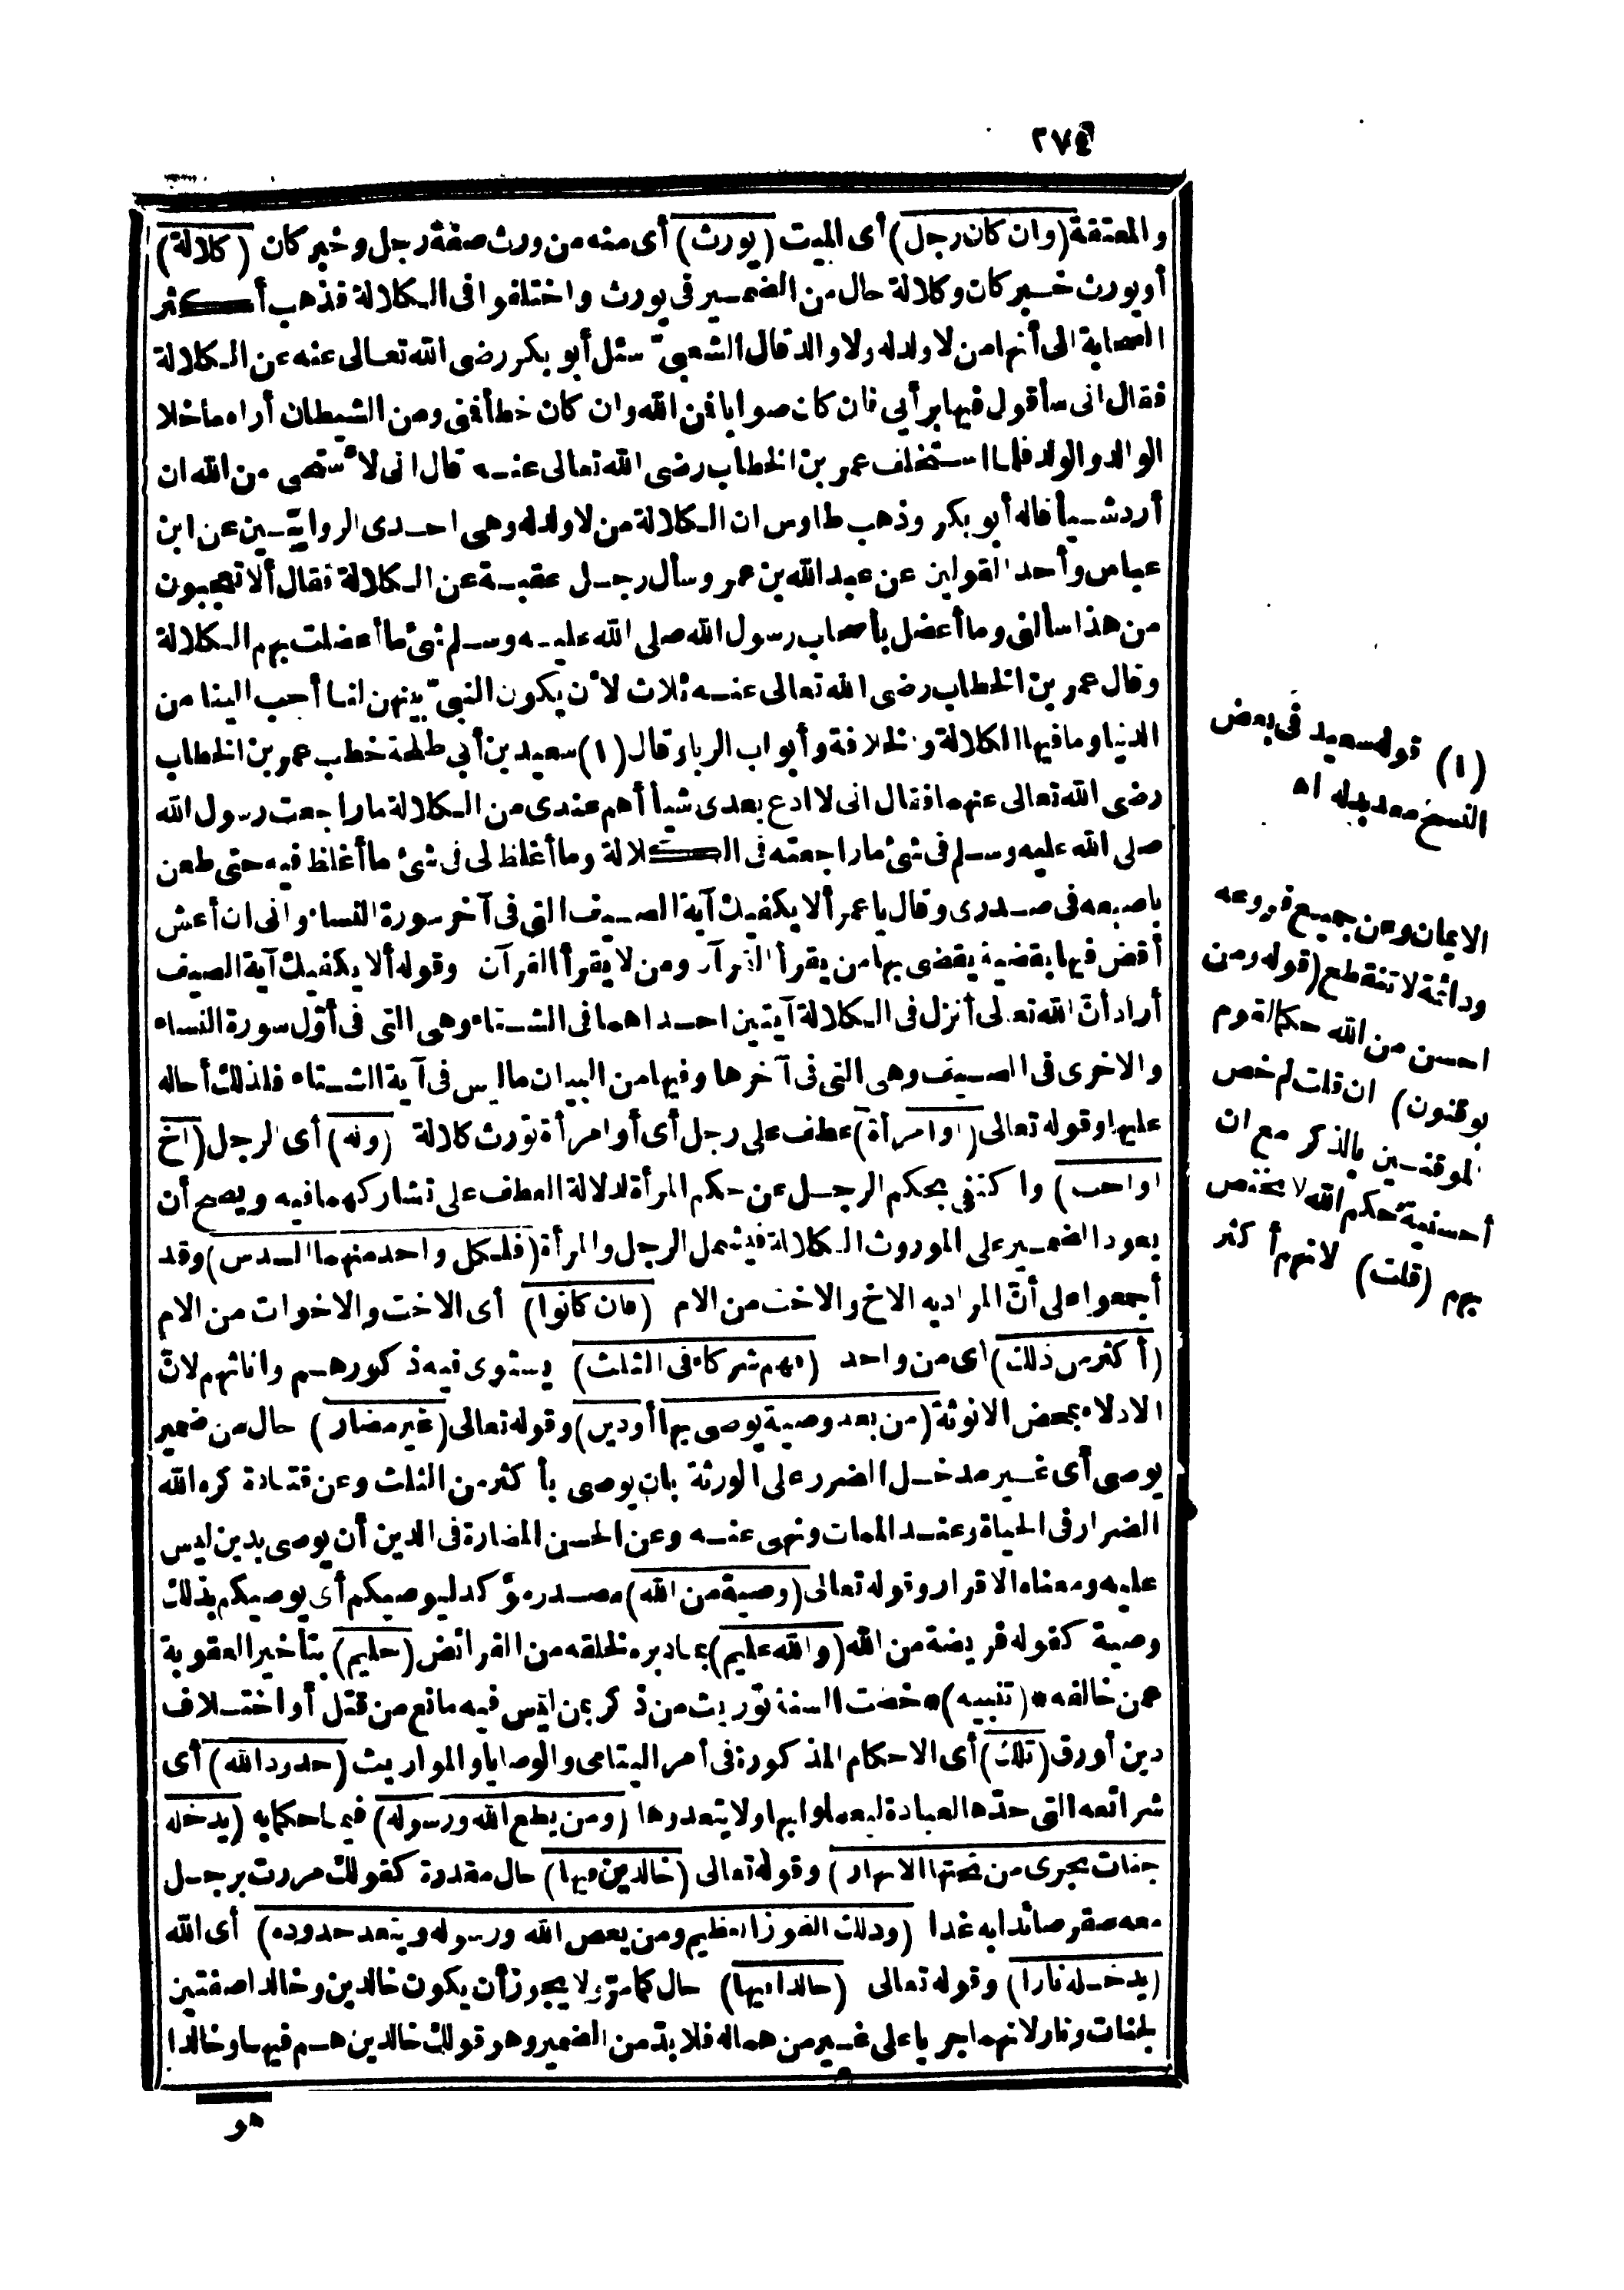 ٢٧٤
والمعتقة (وان كان رجل) أى الميت (يورث) أى منه من ورث صفة رجل وخبر كان (كلالة)
أو يورث خبر كان وكلالة حال من الضمير فى يورث واختلفوا فى الكلالة فذهب أكثر
الصحابة الى أنها من لا ولد له ولا والد قال الشعبىّ سئل أبو بكر رضى الله تعالى عنه عن الكلالة
فقال انى سأقول فيها برأيى فان كان صوابا فن الله وان كان خطأ فنى ومن الشيطان أراه ما خلا
الوالد والولد فلما استخلف عمر بن الخطاب رضى الله تعالى عنه قال انى لأستحيى من الله ان
أرد شيأ قاله أبو بكر وذهب طاوس ان الكلالة من لا ولد له وهى احدى الروايتين عن ابن
عباس وأحد القولين عن عبد الله بن عمر وسأل رجل عقبة عن الكلالة فقال ألا تعجبون
من هذا سألنى وما أعضل بأصحاب رسول الله صلى الله عليه وسلم شئ ما أعضلت بهم الكلالة
وقال عمر بن الخطاب رضى الله تعالى عنه ثلاث لأن يكون النبىّ بينهن لنا أحب الينا من
الدنيا وما فيها الكلالة والخلافة وأبواب الرباء وقال (١) سعيد بن أبى طلحة خطب عمر بن الخطاب
رضى الله تعالى عنهما فقال انى لا ادع بعدى شيأ أهم عندى من الكلالة ما راجعت رسول الله
صلى الله عليه وسلم فى شئ ما راجعته فى الكلالة وما أغلظ لى فى شئ ما أغلظ فيه حتى طعن
باصبعه فى صدرى وقال يا عمر ألا يكفيك آية الصيف التى فى آخر سورة النساء وانى ان أعش
أقض فيها بقضية يقضى بها من يقرأ القرآن ومن لا يقرأ القرآن وقوله ألا يكفيك آية الصيف
أراد أنّ الله تعالى أنزل فى الكلالة آيتين احداهما فى الشتاء وهى التى فى أوّل سورة النساء
والاخرى فى الصيف وهى التى فى آخرها وفيها من البيان ما ليس فى آية الشتاء فلذلك أحاله
عليها وقوله تعالى (أو امرأة) عطف على رجل أى أو امرأة تورث كلالة (وله) أى الرجل (أخ
أو أخت) واكتفى بحكم الرجل عن حكم المرأة لدلالة العطف على تشاركهما فيه ويصح أن
يعود الضمير على الموروث الكلالة فيشمل الرجل والمرأة (فلكل واحد منهما السدس) وقد
أجمعوا على أنّ المراد به الاخ والاخت من الام (فان كانوا) أى الاخت والاخوات من الام
(أكثر من ذلك) أى من واحد (فهم شركاء فى الثلث) يستوى فيه ذكورهم واناثهم لانّ
الادلاء بمحض الانوثة (من بعد وصية يوصى بها أو دين) وقوله تعالى (غير مضار) حال من ضمير
يوصى أى غير مدخل الضرر على الورثة بان يوصى بأكثر من الثلث وعن قتادة كره الله
الضرار فى الحياة وعند الممات ونهى عنه وعن الحسن المضارة فى الدين أن يوصى بدين ليس
عليه ومعناه الاقرار وقوله تعالى (وصية من الله) مصدر مؤكد ليوصيكم أى يوصيكم بذلك
وصية كقوله فريضة من الله (والله عليم) بما دبره لخلقه من الفرائض (حليم) بتأخير العقوبة
عمن خالفه *(تنبيه)* خصت السنة توريث من ذكر بمن ليس فيه مانع من قتل أو اختلاف
دين أو رق (تلك) أى الاحكام المذكورة فى أمر اليتامى والوصايا والمواريث (حدود الله) أى
شرائعه التى حدّها لعباده ليعملوا بها ولا يتعدوها (ومن يطع الله ورسوله) فيما حكما به (يدخله
جنات تجرى من تحتها الانهار) وقوله تعالى (خالدين فيها) حال مقدرة كقولك مررت برجل
معه صقر صائدا به غدا (وذلك الفوز العظيم ومن يعص الله ورسوله ويتعد حدوده) أى الله
(يدخله نارا) وقوله تعالى (خالدا فيها) حال كما مرّ ولا يجوز أن يكون خالدين وخالدا صفتين
لجنات ونار لانهما جريا على غير من هما له فلا بدّ من الضمير وهو قولك خالدين هم فيها وخالدا
هو
(١) قوله سعيد فى بعض
النسخ معد بدله اه
الايمان وعن جميع فروعه
ودائمة لا تنقطع (قوله ومن
احسن من الله حكما لقوم
يوقنون) ان قلت لم خص
الموقنين بالذكر مع ان
أحسنية حكم الله لا يختص
بهم (قلت) لانهم أكثر